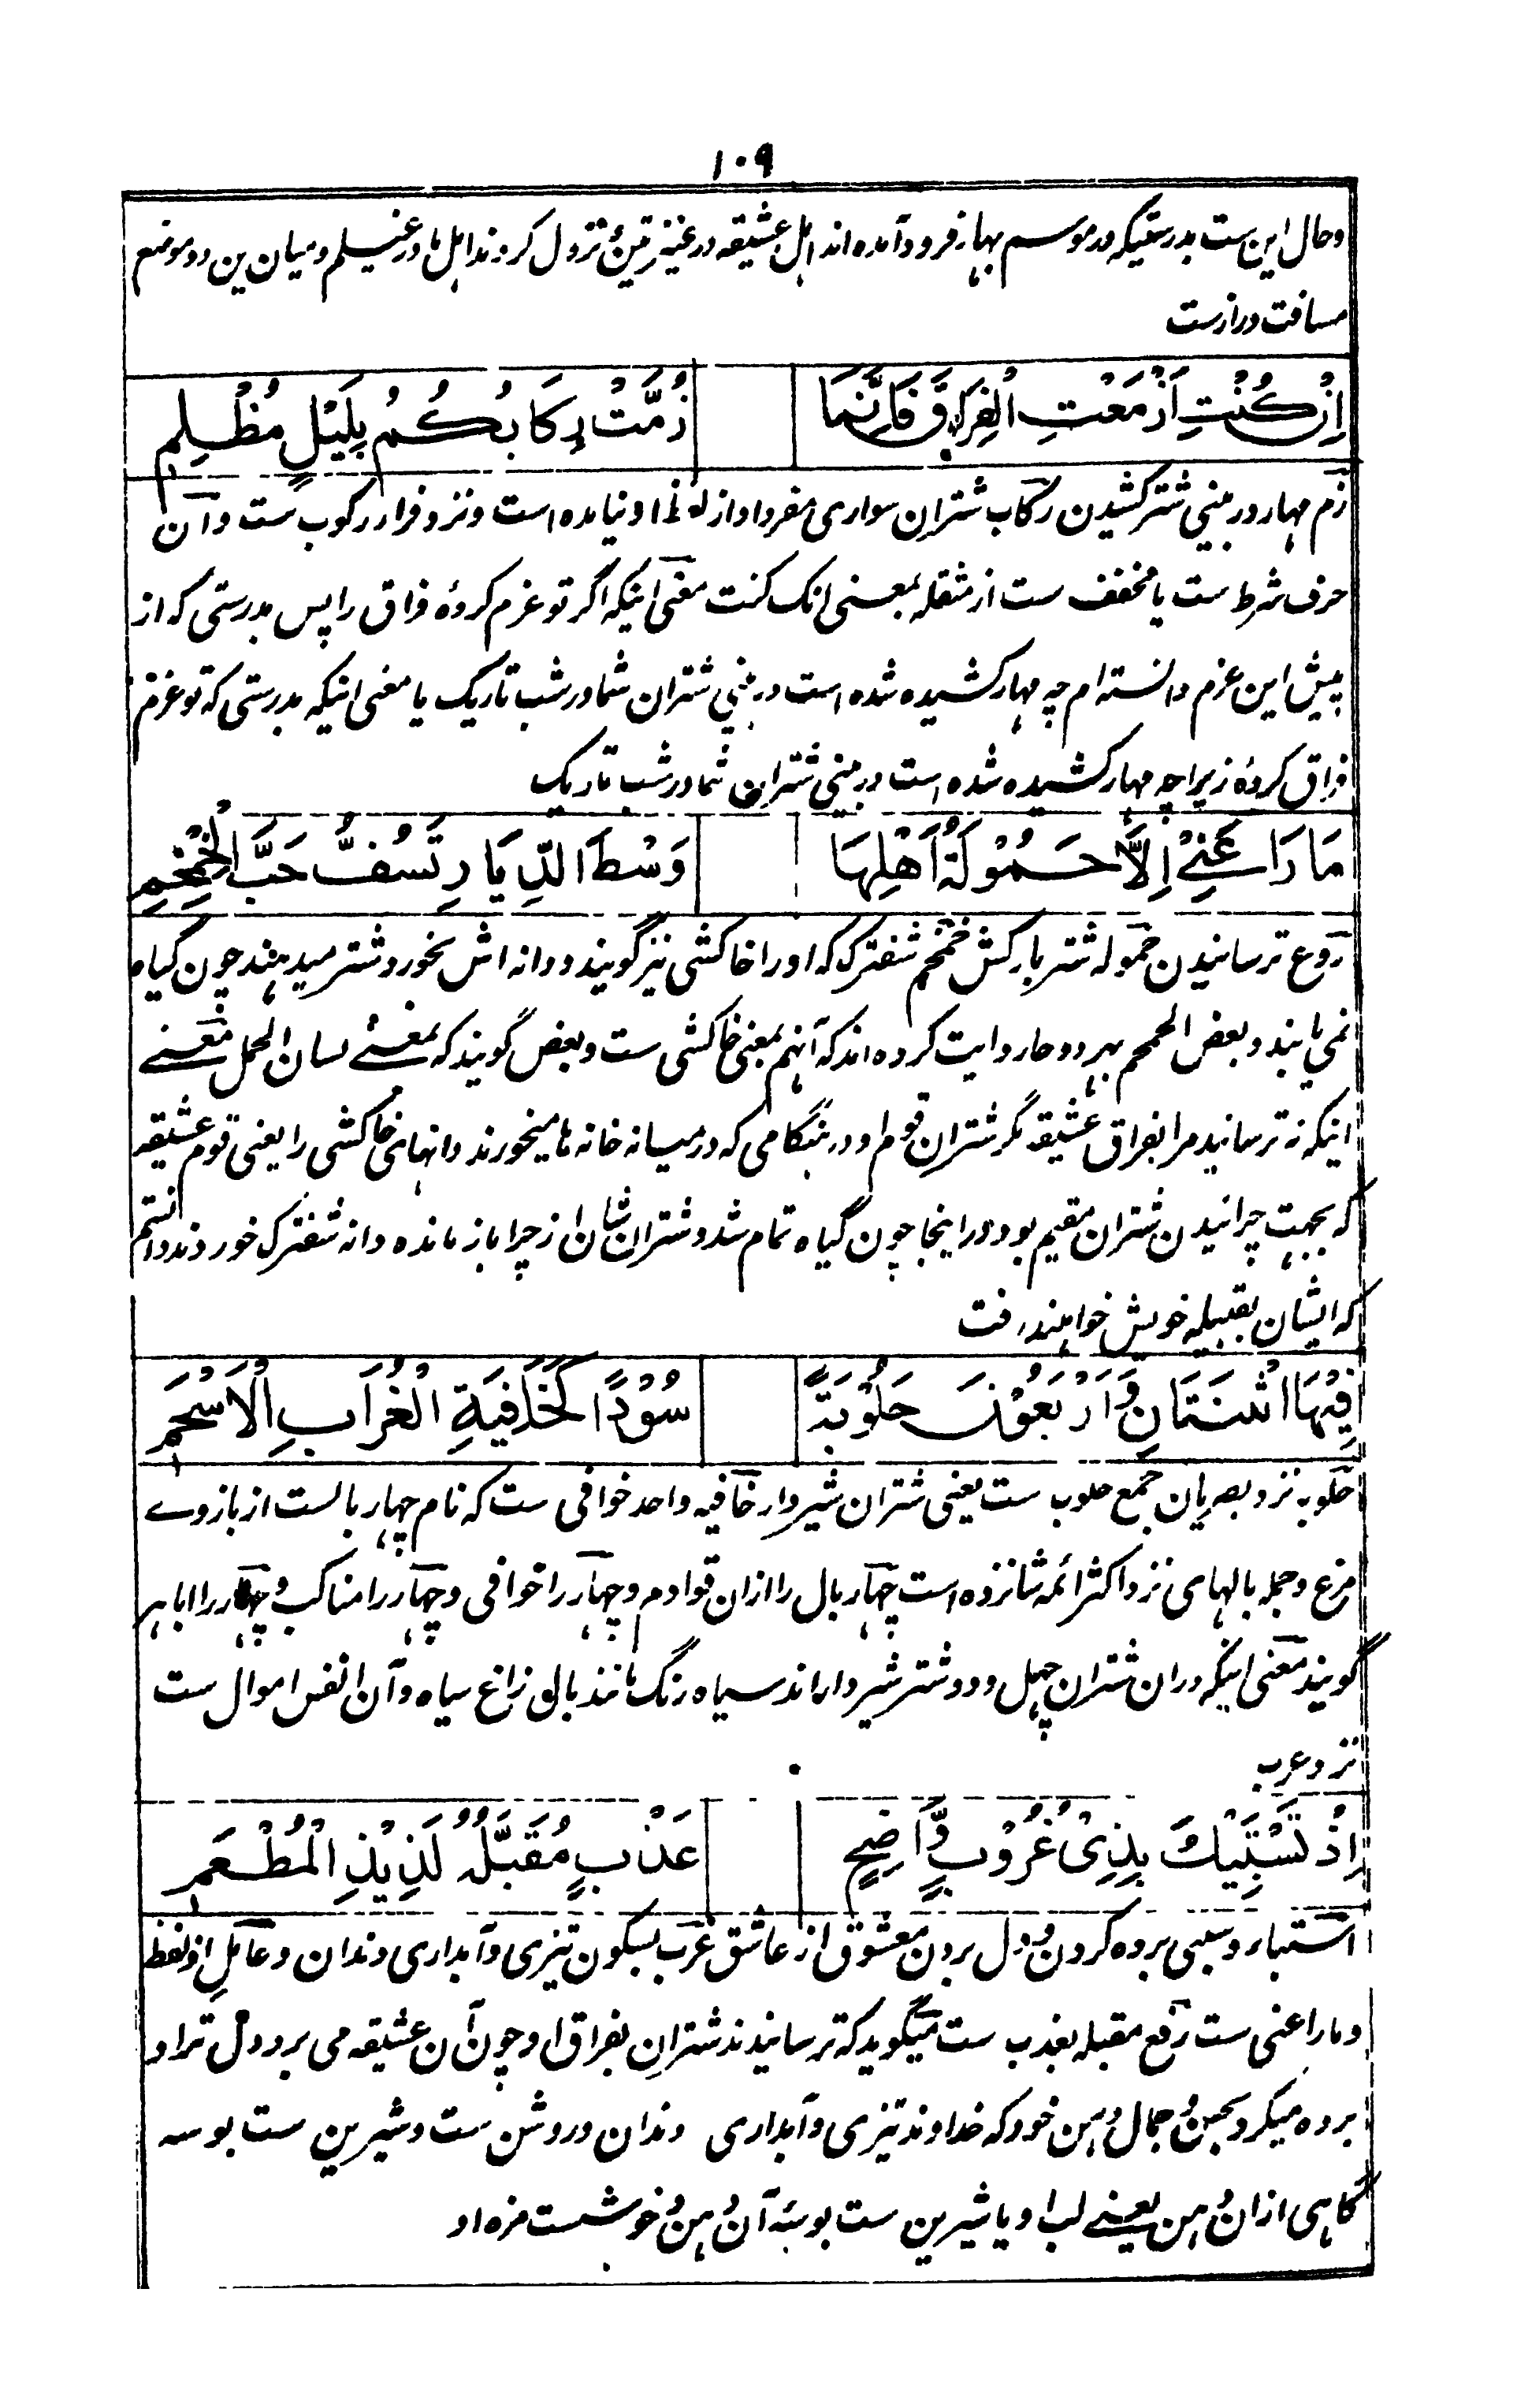 ۱۰۹
وحال این ست بدرستیکه در موسم بهار فرود آمده اند اهل عشیقه در عنیزتین و نزول کردند اهل ما در غیلم و میان این دو موضع
مسافت درازست
اِنْ کُنْتِ اَزْمَعْتِ الْفِرَاقَ فَاِنَّمَا زُمَّتْ رِکَابُکُمُ بِلَیْلٍ مُظْلِمِ
زم مهار در بینی شتر کشیدن رکاب شتران سواری مفرد او از لفظ او نیامده است و نزد فرا رکوب ست و آن
حرف شرط ست یا مخفف ست از مثقله بمعنی انک کنت معنی اینکه اگر تو عزم کردهٔ فراق را پس بدرستی که از
پیش این عزم دانسته ام چه مهار کشیده شده است در بینی شتران شما در شب تاریک یا معنی اینکه بدرستی که تو عزم
فراق کردهٔ زیراچه مهار کشیده شده است در بینی شتران شما در شب تاریک
مَا رَاعَنِیْ اِلَّا حَمُوْلَةُ اَهْلِهَا وَسْطَ الدِّیَارِ تَسُفُّ حَبَّ الْخِمْخِمِ
روع ترسانیدن حموله شتر بارکش خمخم شفترک که او را خاکشی نیز گویند و دانه اش بخورد شتر میدهند چون گیاه
نمی یابند و بعض الحمحم بهر دو حا روایت کرده اند که آنهم بمعنی خاکشی ست و بعض گویند که بمعنے لسان الحمل معنے
اینکه نه ترسانید مرا بفراق عشیقه مگر شتران قوم او در هنگامی که در میانه خانه ها میخورند دانهای خاکشی را یعنی قوم عشیقه
که بجهت چرانیدن شتران مقیم بود در اینجا چون گیاه تمام شد و شتران شان از چرا باز مانده دانه شفترک خوردند دانستم
که ایشان بقبیله خویش خواهند رفت
فِیْهَا اثْنَتَانِ وَّاَرْبَعُوْنَ حَلُوْبَةً سُوْدًا کَخَافِیَةِ الْغُرَابِ الْاَسْحَمِ
حلوبه نزد بصریان جمع حلوب ست یعنی شتران شیردار خافیه واحد خوافی ست که نام چهار بالست از بازوے
مرغ و جمله بالهای نزد اکثر ائمه شانزده است چهار بال را ازان قوادم و چهار را خوافی و چهار را مناکب و چهار را اباهر
گویند معنی اینکه دران شتران چهل و دو شتر شیردار اند سیاه رنگ مانند بال زاغ سیاه و آن انفس اموال ست
نزد عرب
اِذْ تَسْتَبِیْكَ بِذِیْ غُرُوْبٍ وَّاضِحٍ عَذْبٍ مُقَبَّلُهٗ لَذِیْذِ الْمَطْعَمِ
استباء و سبی برده کردن و دل بردن معشوق از عاشق غرب بسکون تیزی و آبداری دندان و عامل اذ لفظ
و ما راعنی ست رفع مقبله بعذب ست میگوید که ترسانیدند شتران بفراق او چون آن عشیقه می برد دل ترا و
برده میکرد بحسن و جمال دهن خود که خداوند تیزی و آبداری دندان و روشن ست و شیرین ست بوسه
گاهی ازان دهن یعنے لب او یا شیرین ست بوسهٔ آن دهن و خوشست مزه او